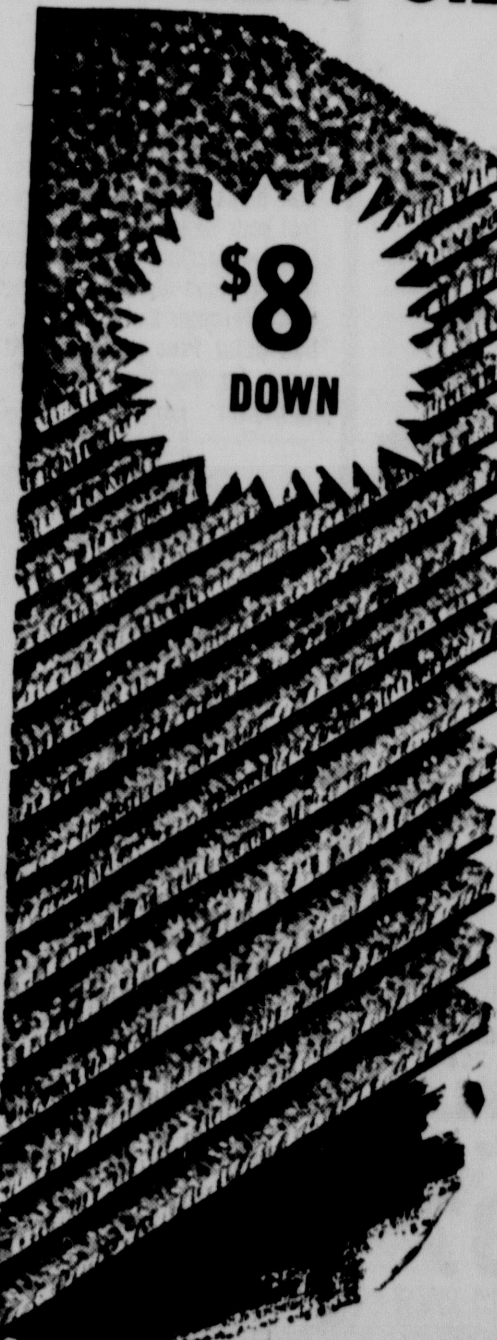 $8
DOWN